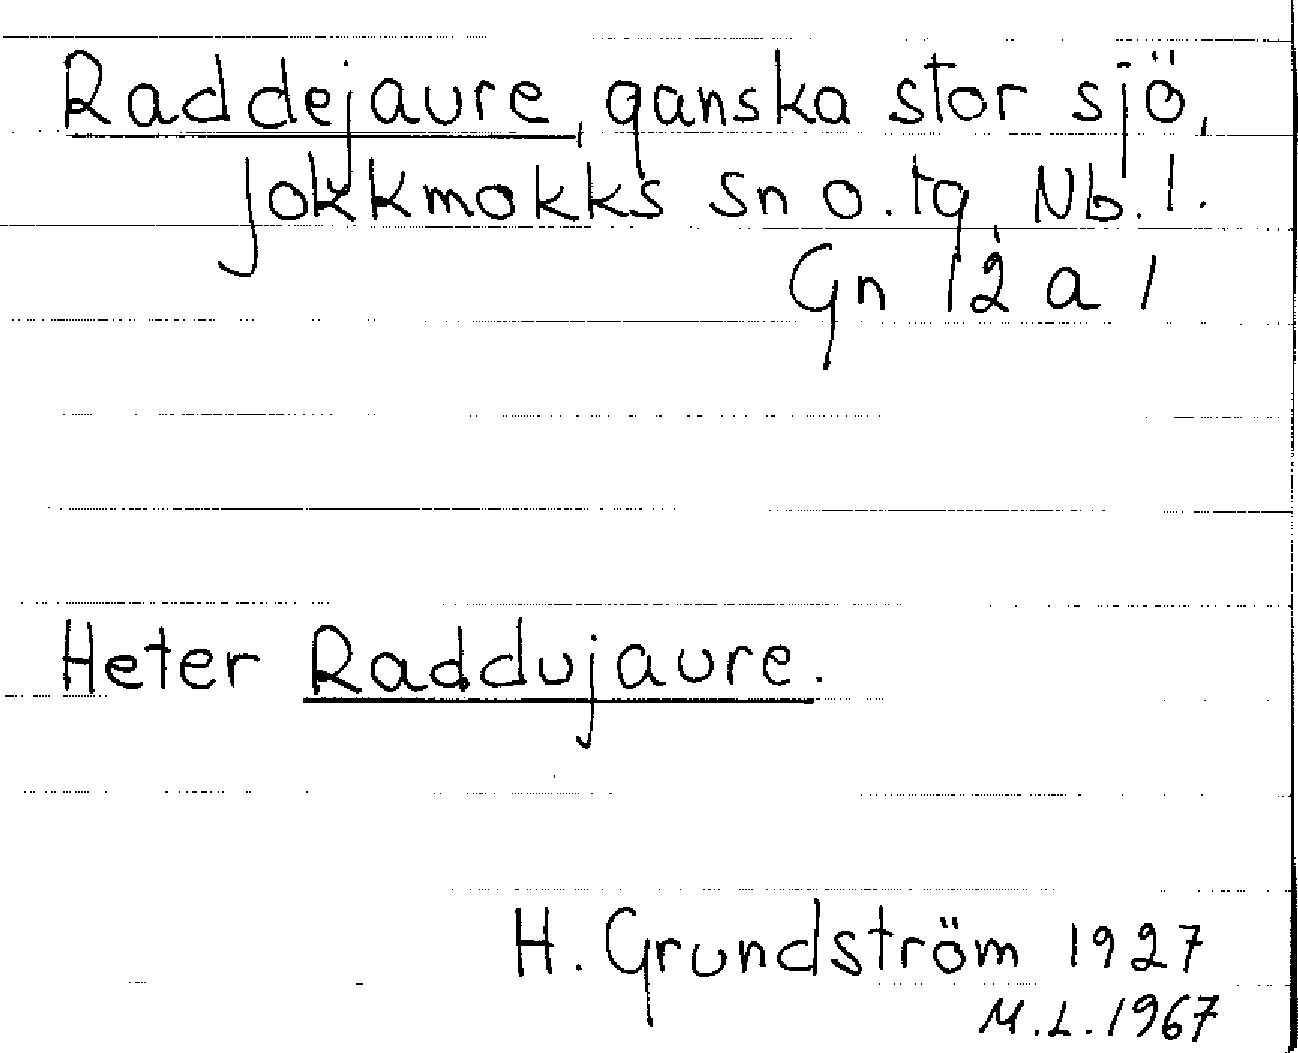 Raddejaure, ganska stor sjö,
Jokkmokks sn o. tg, Nb. l.
Gn 12 a 1
Heter Raddujaure.
H. Grundström 1927
M.L. 1967